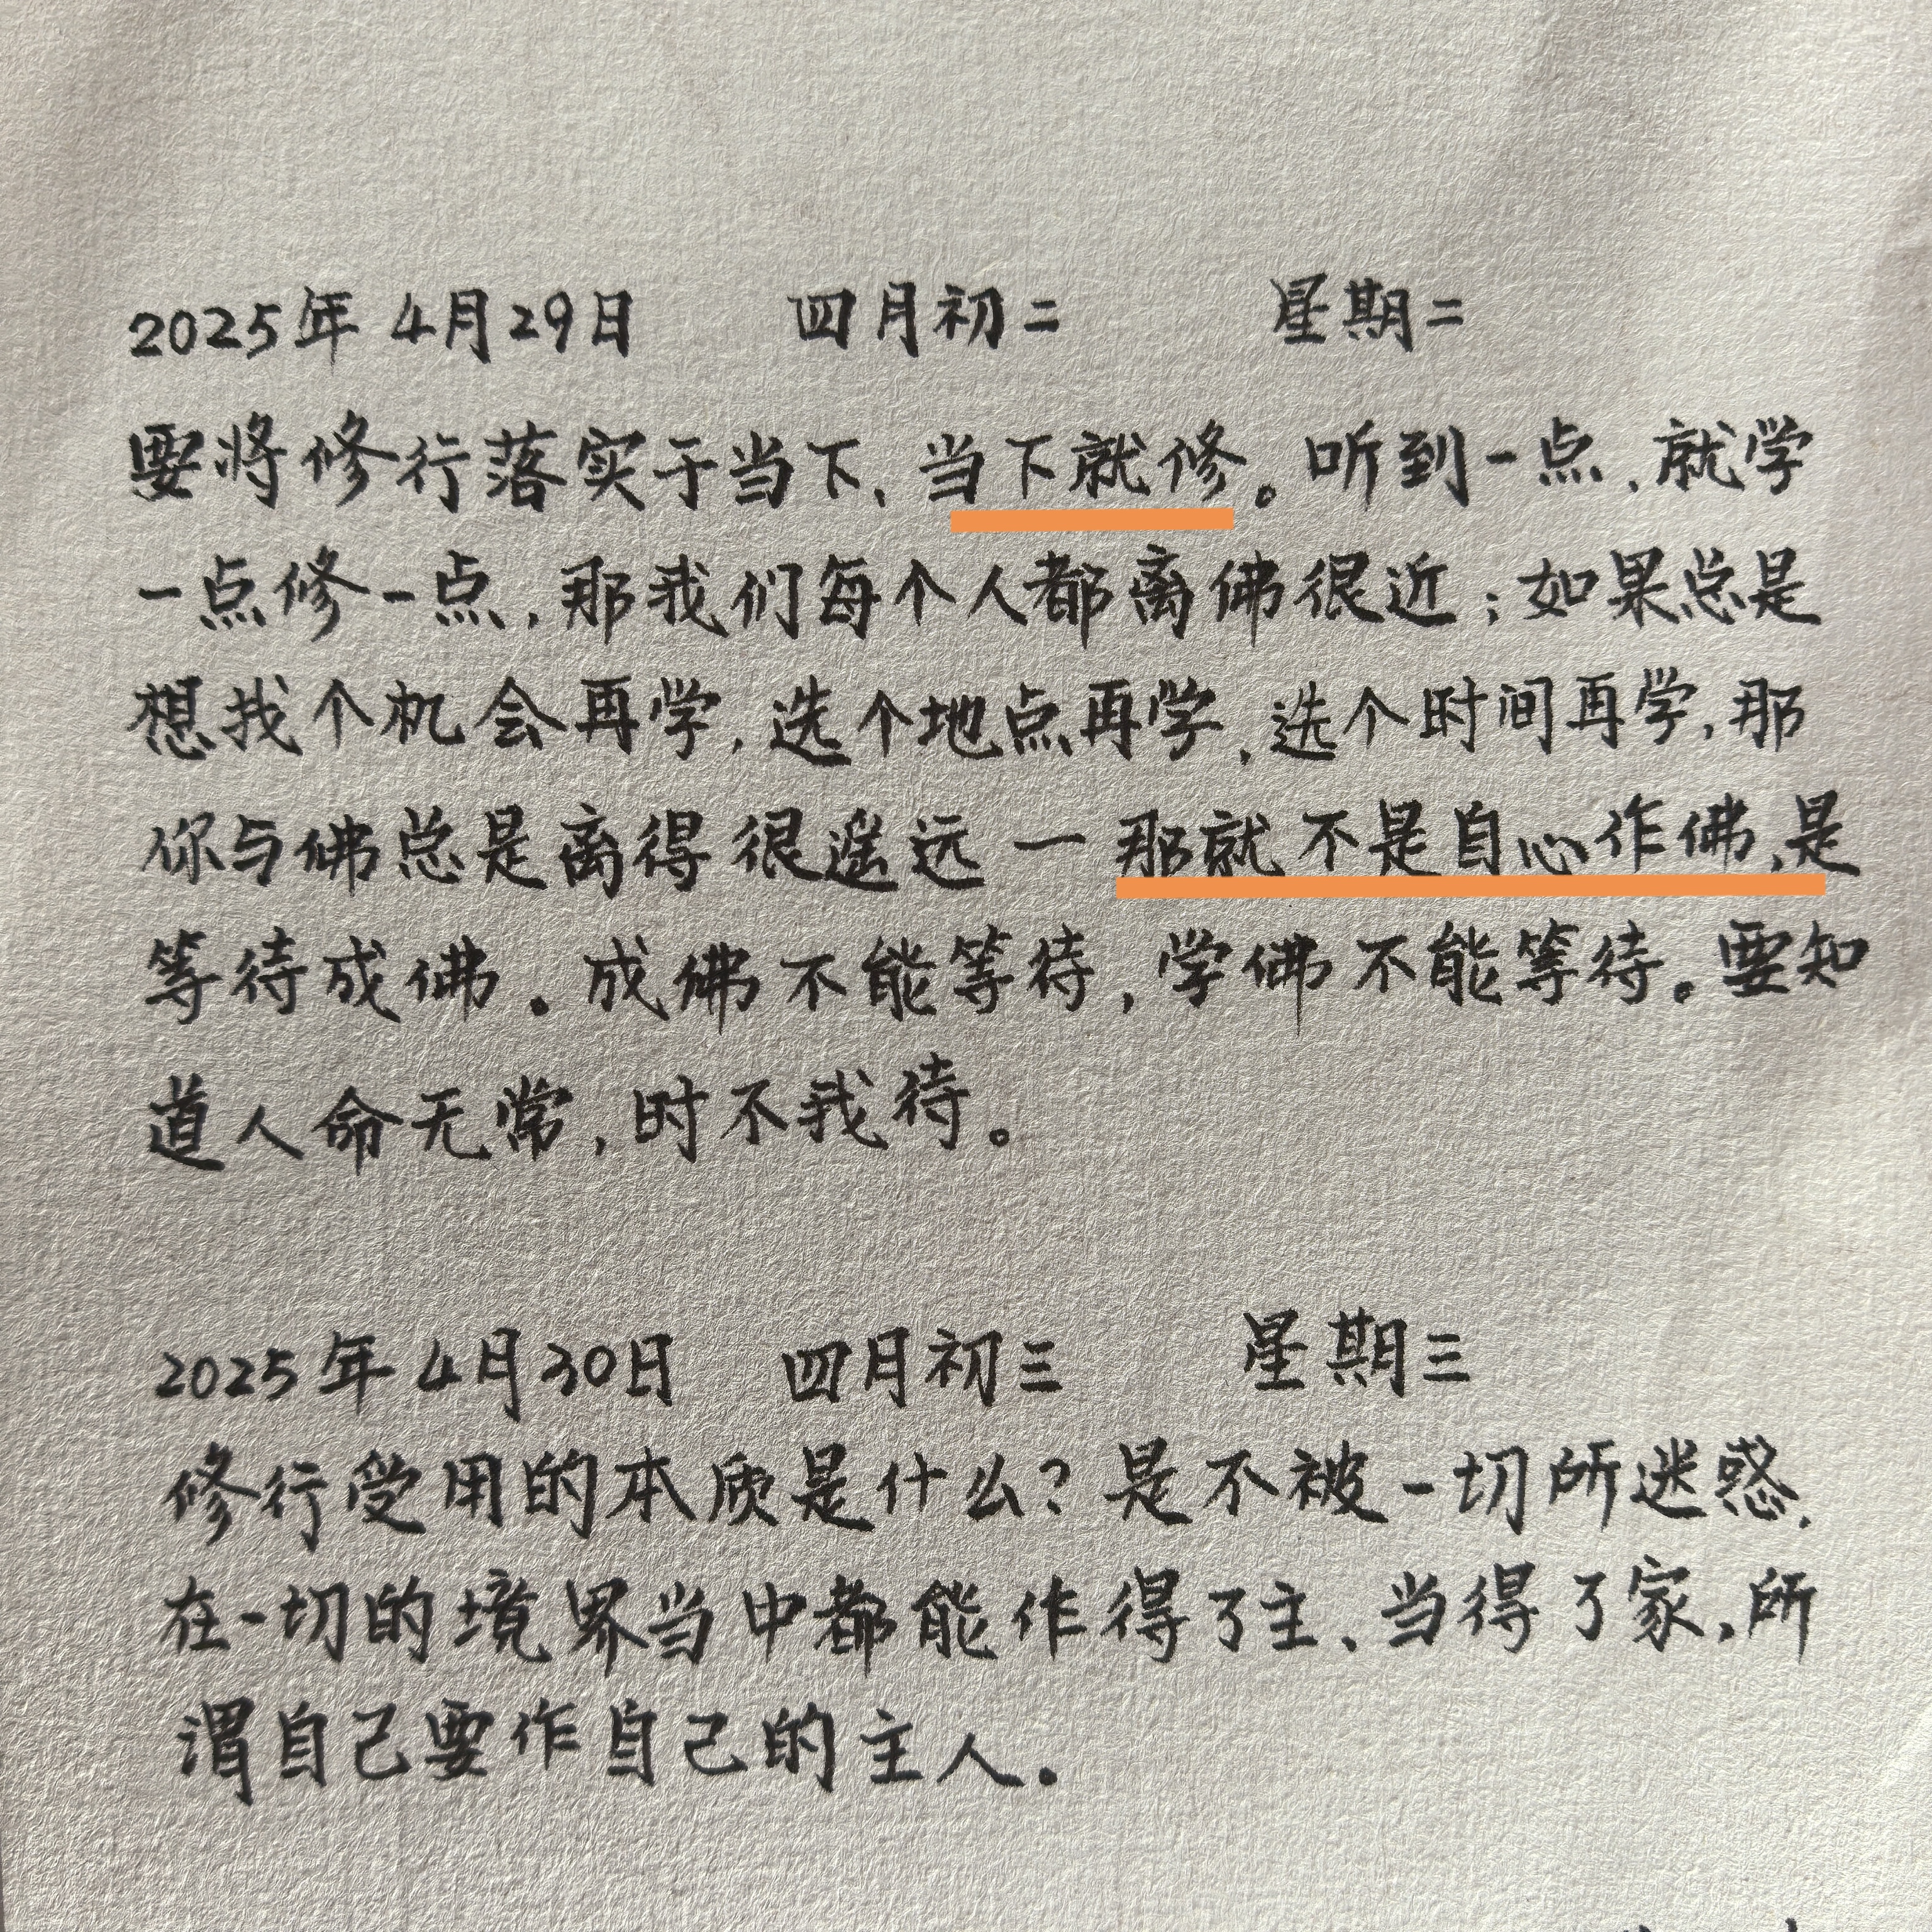 2025年4月29日 四月初二 星期二
要将修行落实于当下、当下就修。听到一点,就学
一点修一点,那我们每个人都离佛很近;如果总是
想找个机会再学,选个地点再学,选个时间再学,那
你与佛总是离得很遥远一那就不是自心作佛,是
等待成佛.成佛不能等待,学佛不能等待。要知
道人命无常,时不我待。
2025年4月30日 四月初三 星期三
修行受用的本质是什么?是不被一切所迷惑.
在一切的境界当中都能作得了主、当得了家,所
谓自己要作自己的主人.